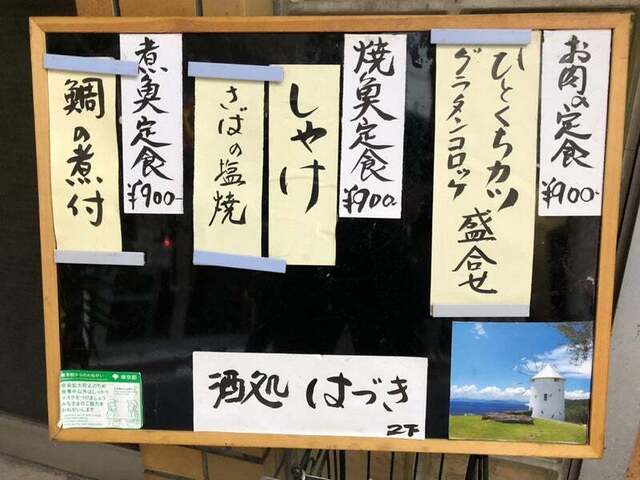 お肉の定食
¥900-
ひとくちカツ
グラタンコロッケ
盛合せ
焼魚定食
¥900-
しゃけ
さばの塩焼
煮魚定食
¥900-
鯛の煮付
酒処 はづき
2F
東京都